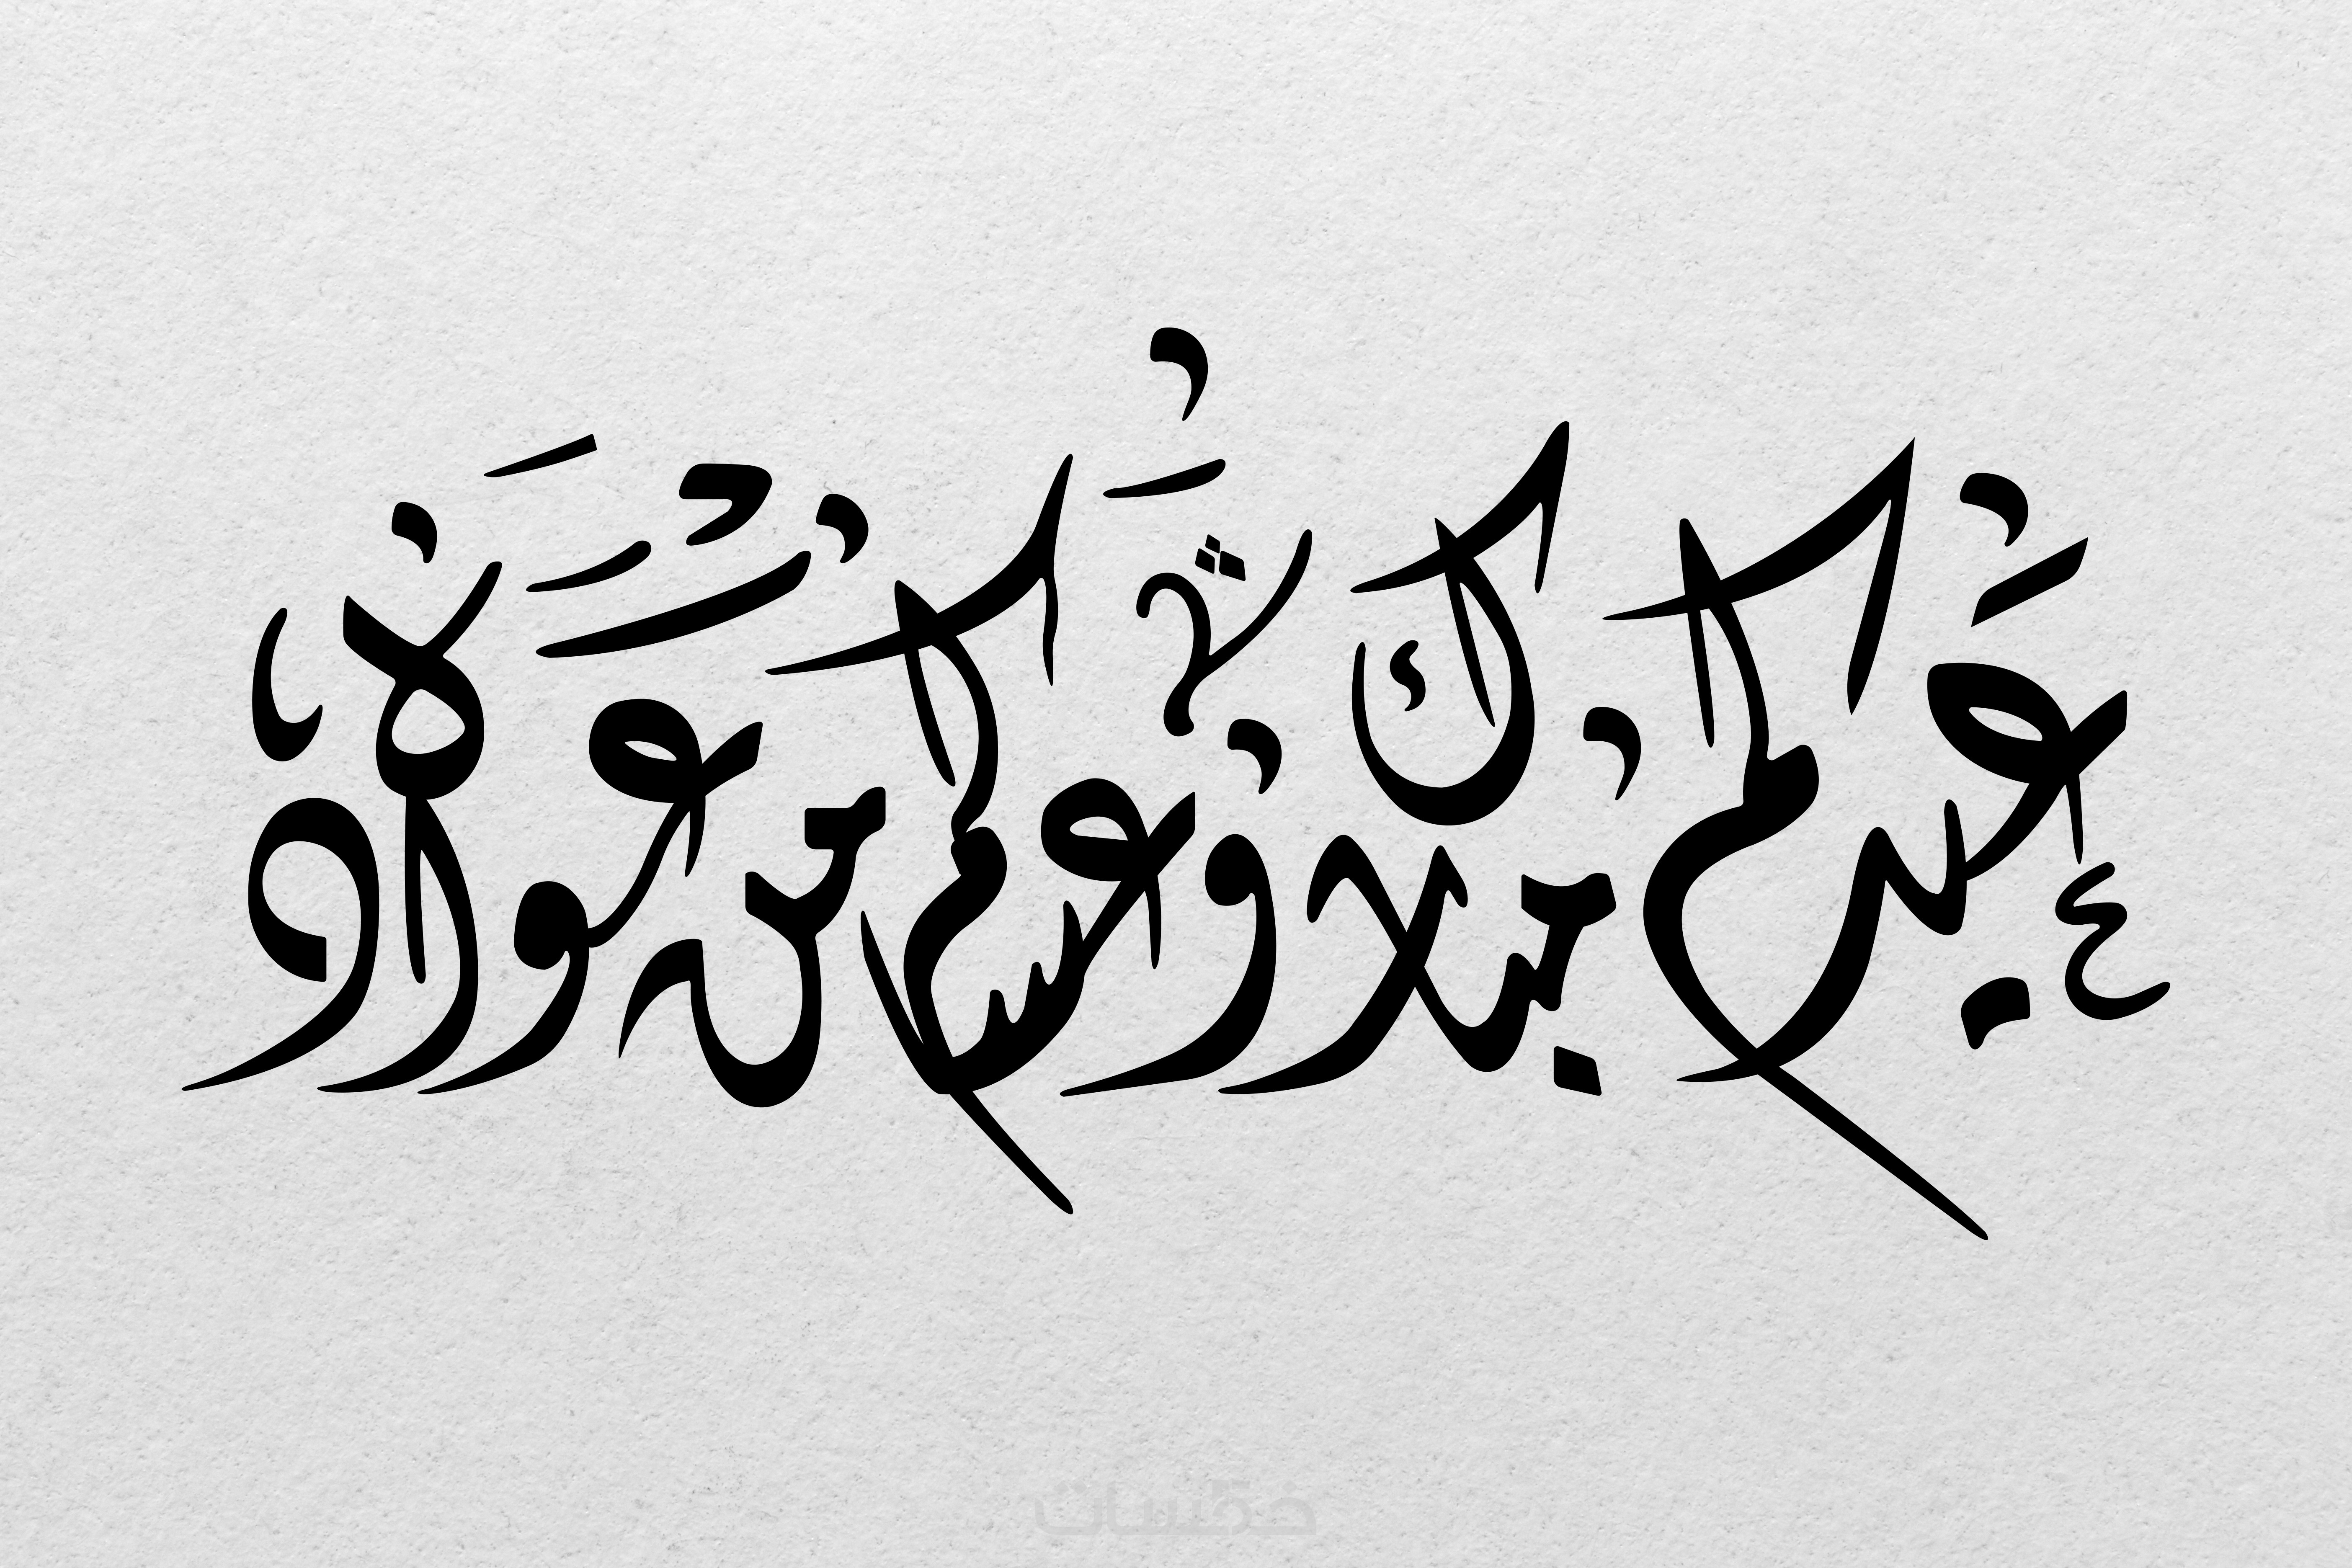 عيدكم مبارك وعساكم من عواده
خمسات